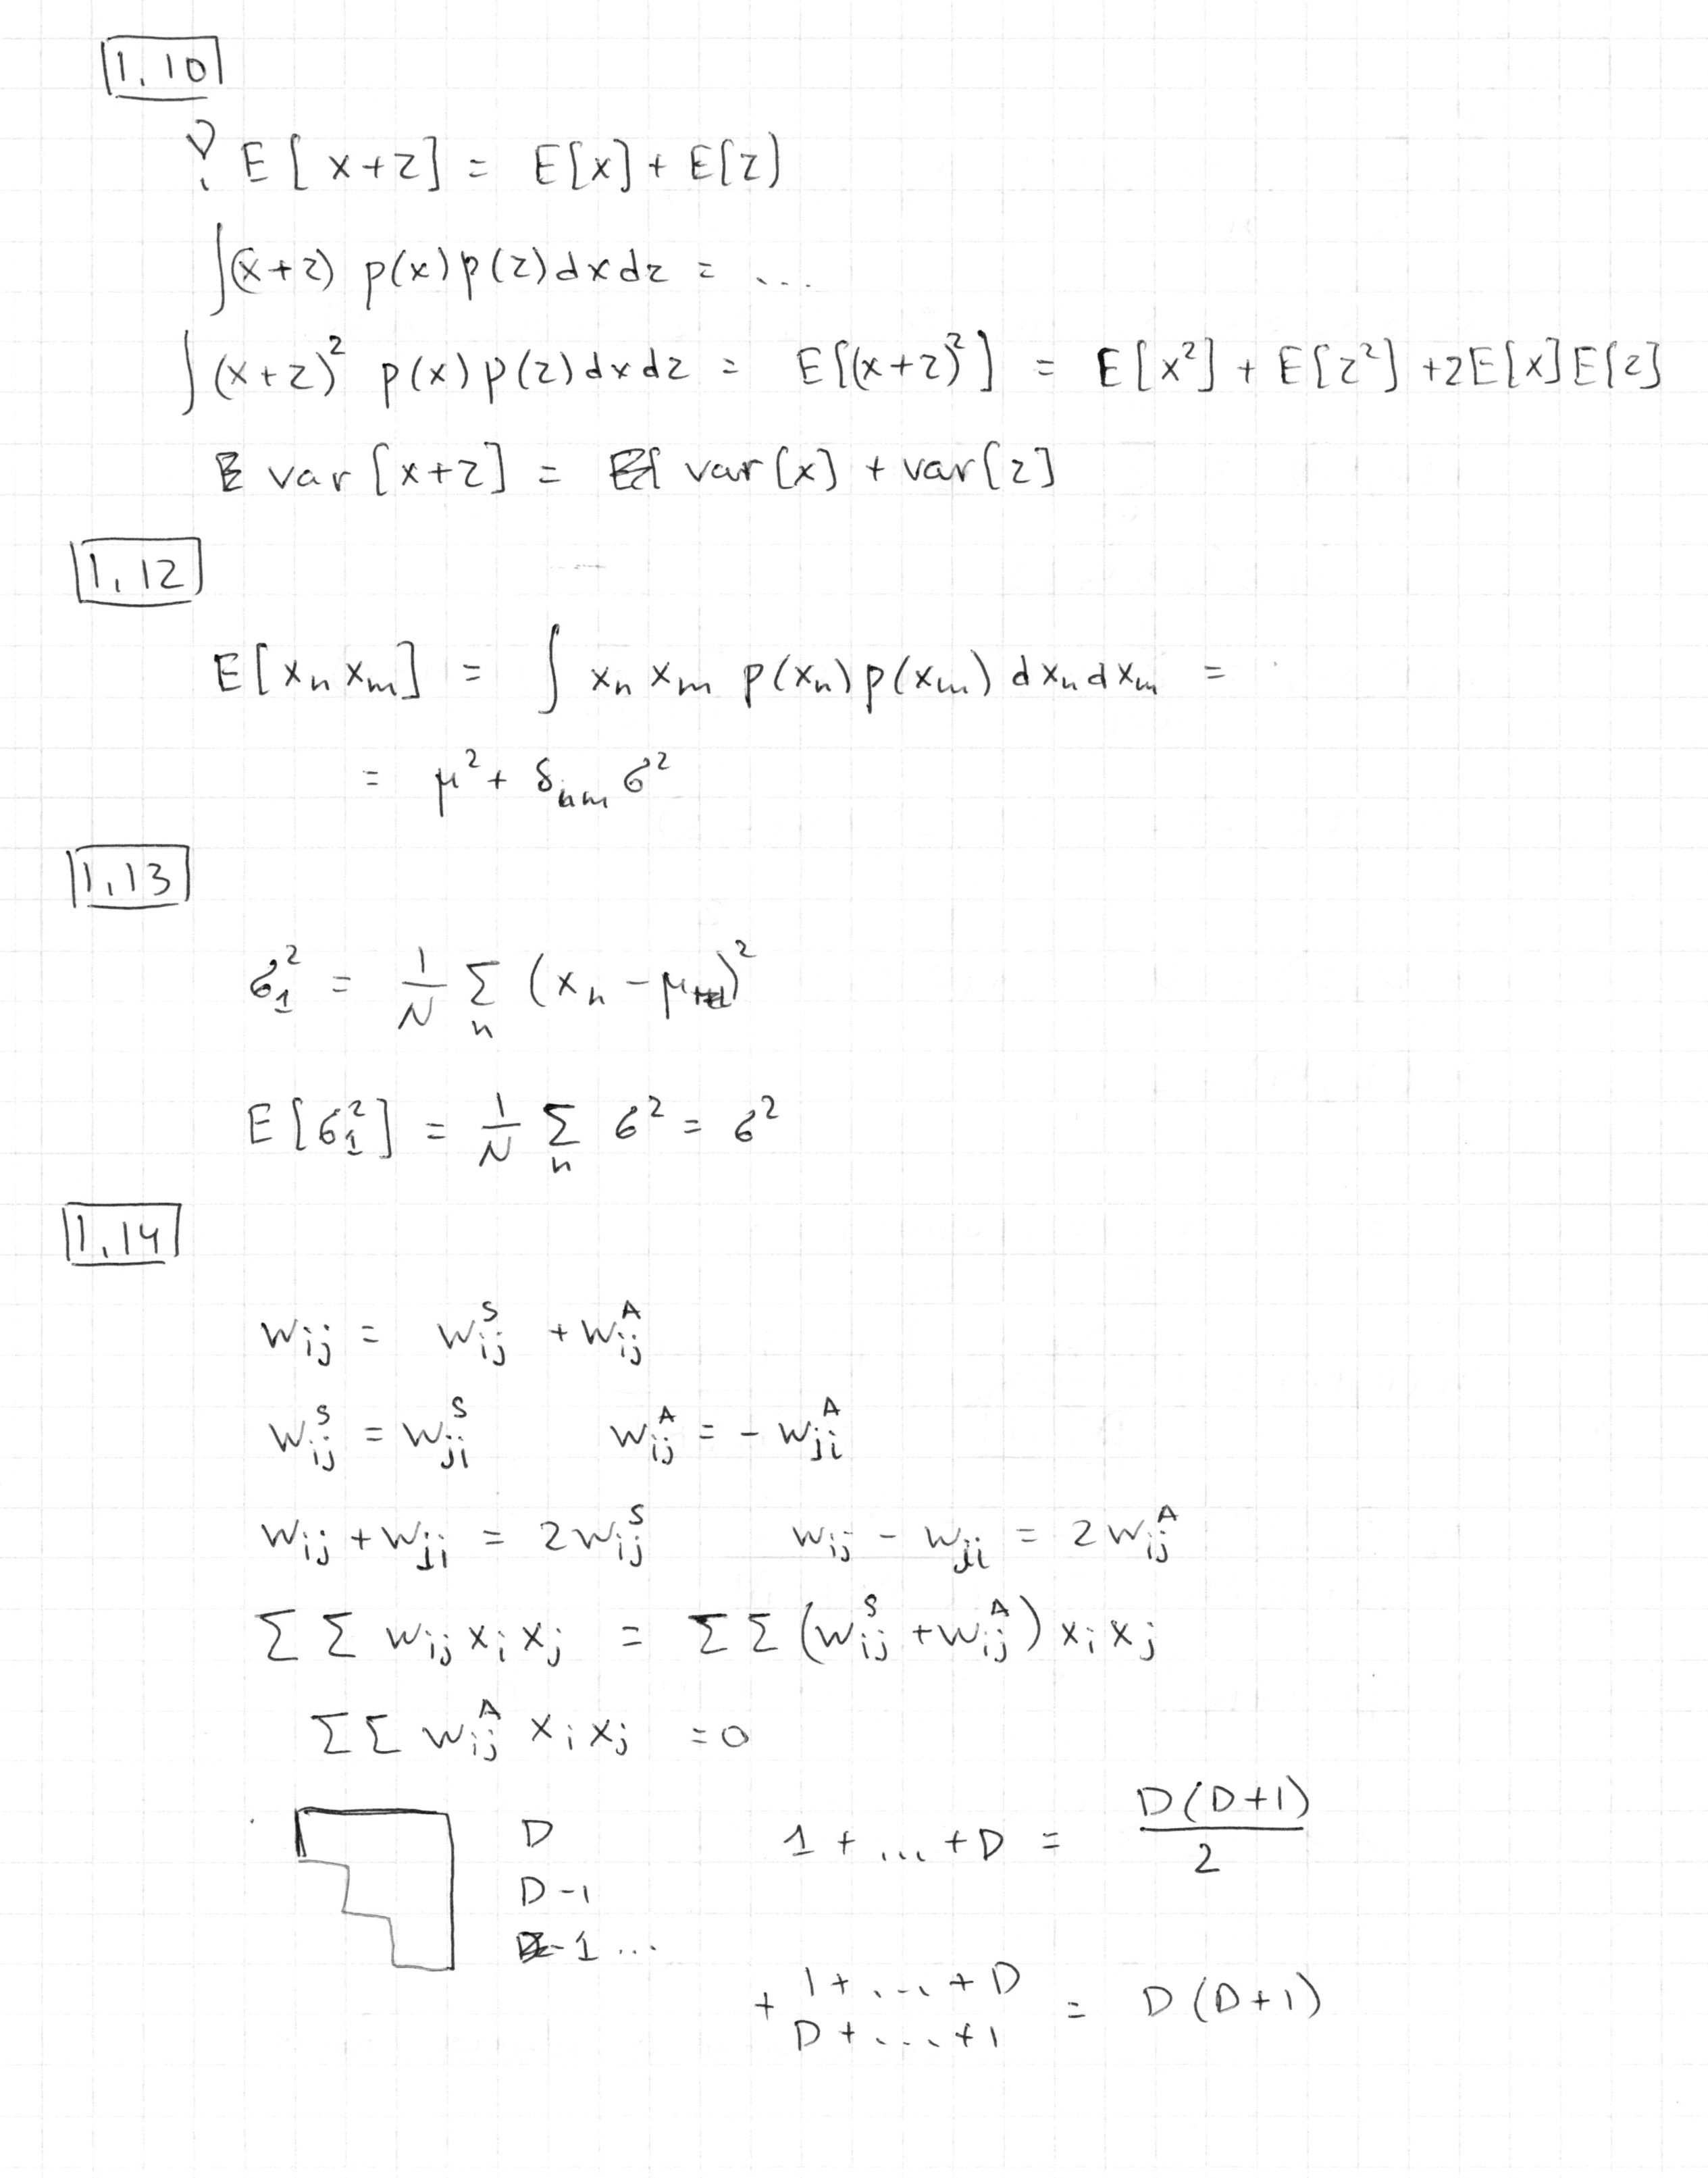 1.10
? E[x+z] = E[x] + E[z]
∫(x+z) p(x)p(z)dxdz = ...
∫(x+z)² p(x)p(z)dxdz = E[(x+z)²] = E[x²] + E[z²] + 2E[x]E[z]
var[x+z] = var[x] + var[z]
1.12
E[xₙ xₘ] = ∫ xₙ xₘ p(xₙ)p(xₘ) dxₙdxₘ =
= μ² + δₙₘ σ²
1.13
σ₁² = 1/N Σₙ (xₙ - μ)²
E[σ₁²] = 1/N Σₙ σ² = σ²
1.14
w_ij = w_ij^S + w_ij^A
w_ij^S = w_ji^S w_ij^A = - w_ji^A
w_ij + w_ji = 2w_ij^S w_ij - w_ji = 2w_ij^A
Σ Σ w_ij x_i x_j = Σ Σ (w_ij^S + w_ij^A) x_i x_j
Σ Σ w_ij^A x_i x_j = 0
D 1 + ... + D = D(D+1)/2
D-1
-1 ...
+ 1 + ... + D
D + ... + 1 = D(D+1)